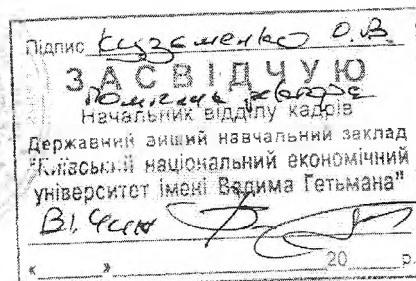 Підпис Кузьменко О.В.
ЗАСВІДЧУЮ
Начальник відділу кадрів
Державний вищий навчальний заклад
"Київський національний економічний
університет імені Вадима Гетьмана"
В.І. Чин
"___"___________20___р.